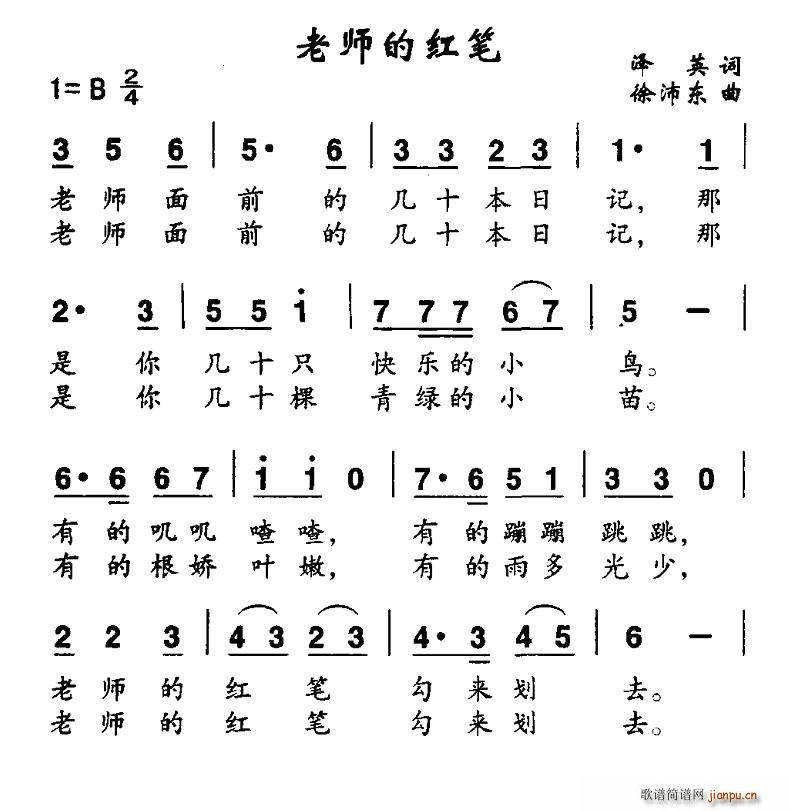 老师的红笔
泽 英 词
1=B 2/4
徐沛东 曲
3 5 6 | 5· 6 | 3 3 2 3 | 1· 1 |
老 师 面 前 的 几 十 本 日 记, 那
老 师 面 前 的 几 十 本 日 记, 那
2· 3 | 5 5 i | 7 7 7 6 7 | 5 — |
是 你 几 十 只 快 乐 的 小 鸟。
是 你 几 十 棵 青 绿 的 小 苗。
6· 6 6 7 | i i 0 | 7· 6 5 1 | 3 3 0 |
有 的 叽 叽 喳 喳, 有 的 蹦 蹦 跳 跳,
有 的 根 娇 叶 嫩, 有 的 雨 多 光 少,
2 2 3 | 4 3 2 3 | 4· 3 4 5 | 6 — |
老 师 的 红 笔 勾 来 划 去。
老 师 的 红 笔 勾 来 划 去。
歌谱简谱网
jianpu.cn